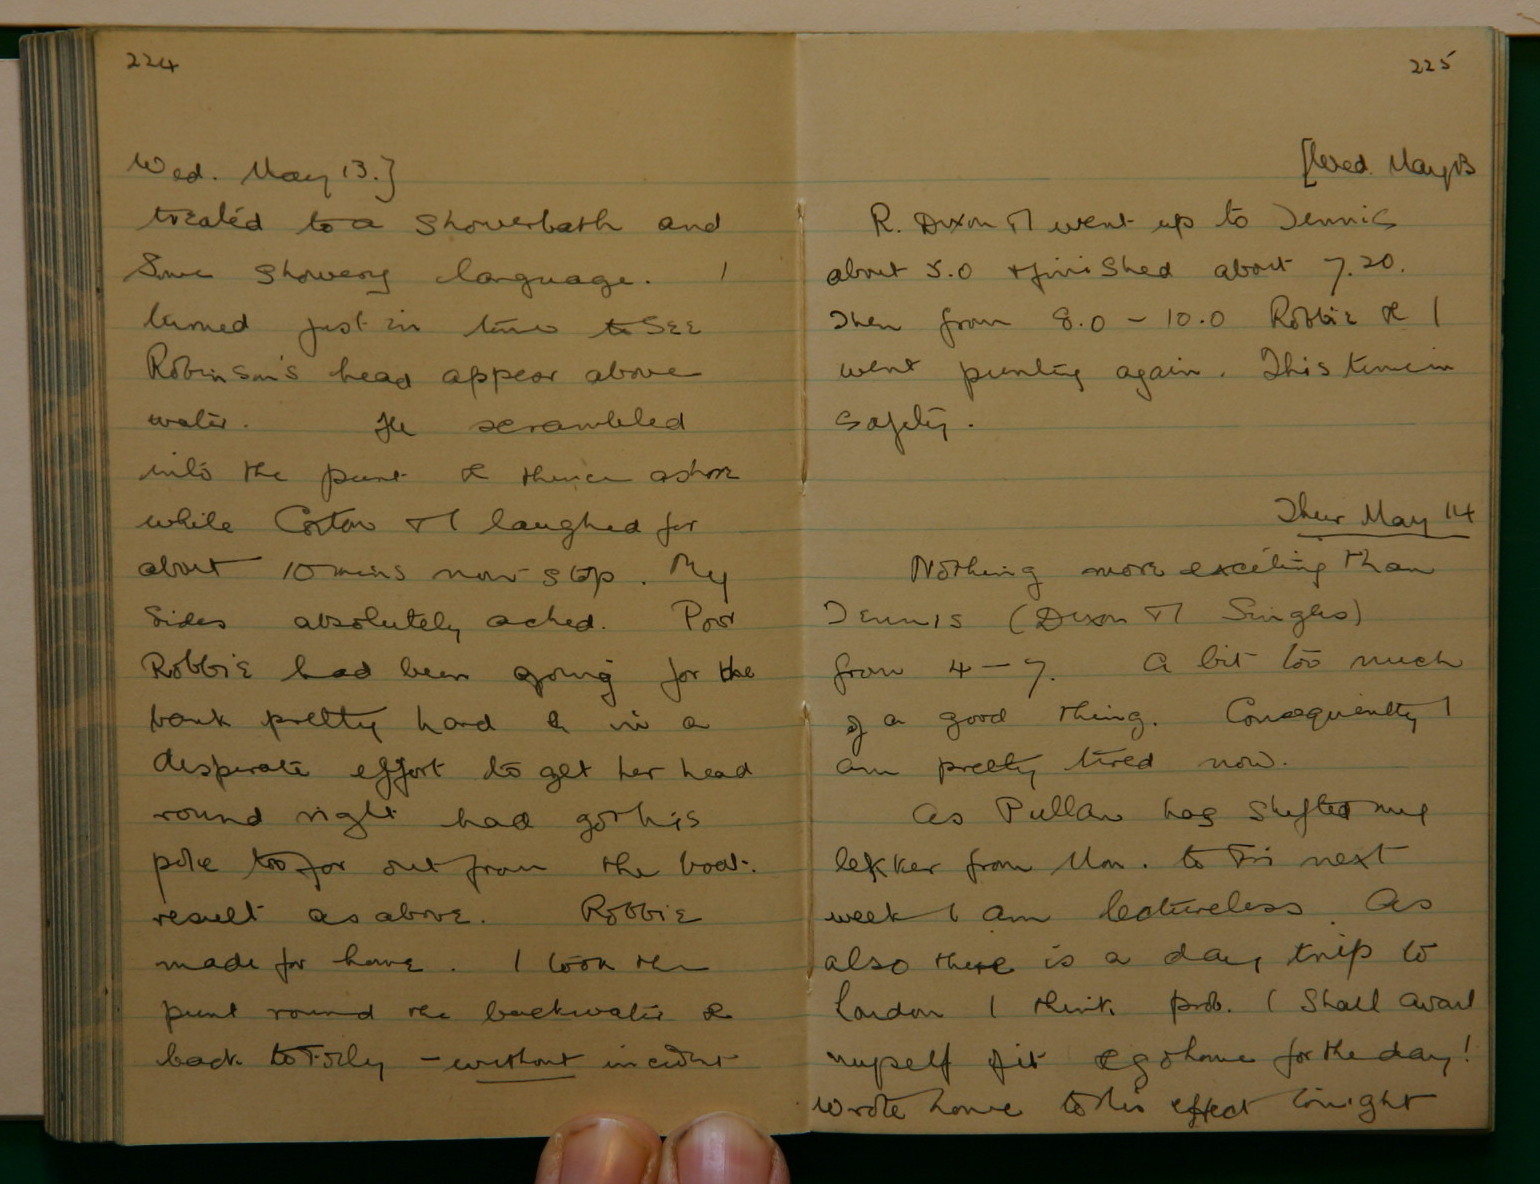 224
Wed. May 13.}
treated to a showerbath and
some showery language. I
turned just in time to see
Robinson's head appear above
water. He scrambled
into the punt & thence ashore
while Cotton & I laughed for
about 10 mins non stop. My
sides absolutely ached. Poor
Robbie had been going for the
bank pretty hard & in a
desperate effort to get her head
round right had got his
pole too far out from the boat.
result as above. Robbie
made for home. I took the
punt round the backwater &
back to Tilly - without incident
225
[Wed. May 13
R. Dixon & I went up to Tennis
about 5.0 & finished about 7.20.
Then from 8.0 - 10.0 Robbie & I
went punting again. This time in
safety.
Thur May 14
Nothing more exciting than
Tennis (Dixon & I Singles)
from 4 - 7. A bit too much
of a good thing. Consequently I
am pretty tired now.
As Pullan has shifted my
lekker from Mon. to Fri next
week I am lectureless. As
also there is a day trip to
London I think prob. I shall avail
myself of it & go home for the day!
Wrote home to this effect tonight